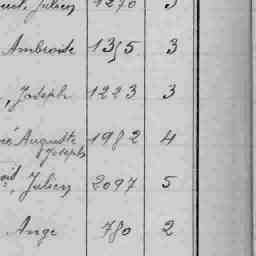 Julien 1270 3
Ambroise 1355 3
Joseph 1223 3
Auguste 1982 4
Joseph
Julien 2097 5
Ange 780 2